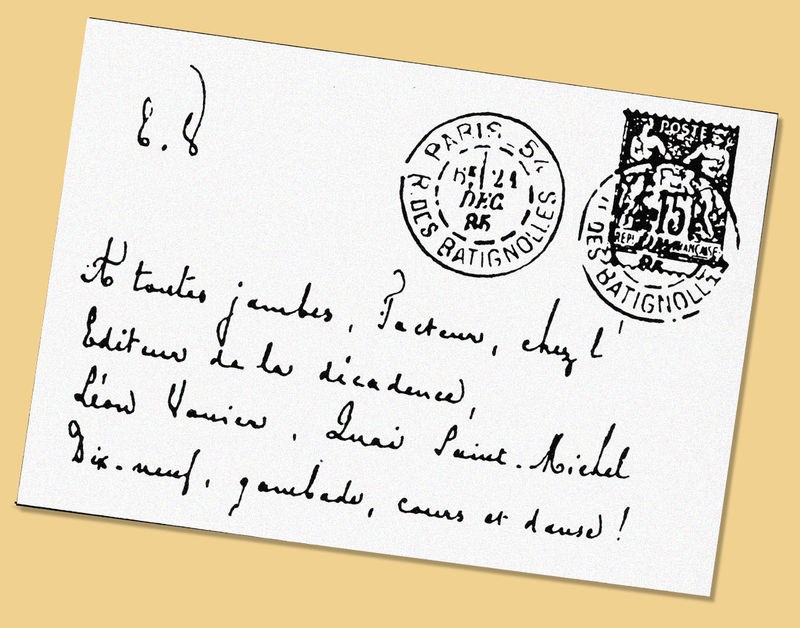 E. V
PARIS. 54
R. DES BATIGNOLLES
6E 21
DEC
85
POSTE
15
REPUBLIQUE FRANCAISE
DES BATIGNOLLES
A toutes jambes, Facteur, chez l'
Editeur de la décadence,
Léon Vanier, Quai Saint-Michel
Dix-neuf, gambade, cours et danse !